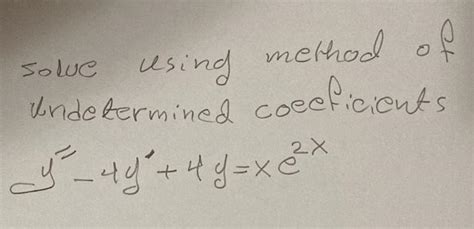 solve using method of
undetermined coeeficients
y" - 4y' + 4y = xe^2x